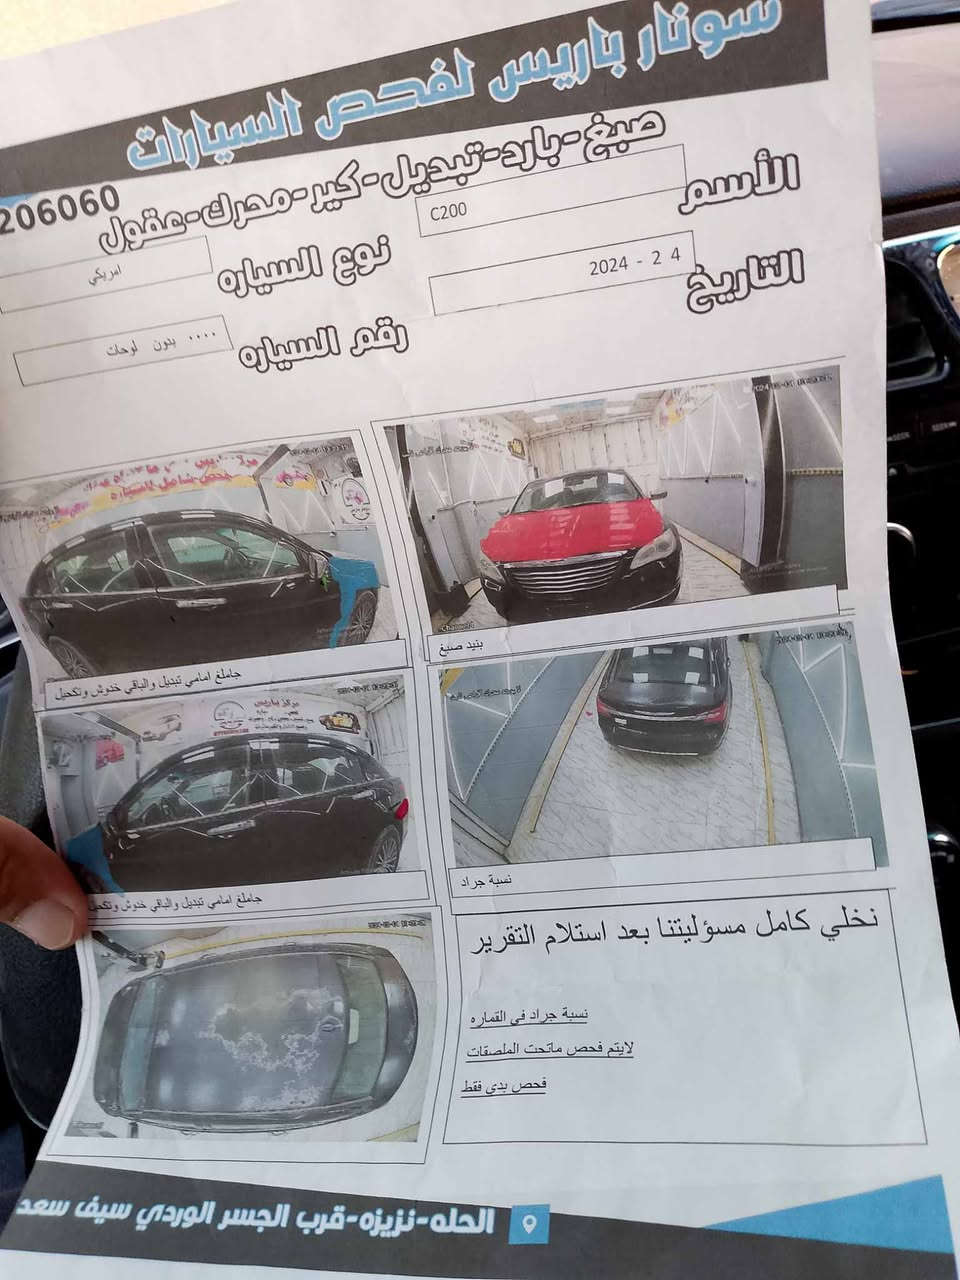 سونار باريس لفحص السيارات
صبغ-بارد-تبديل-كير-محرك-عقول
206060
الأسم
C200
نوع السياره
امريكي
التاريخ
2024 - 2 4
رقم السياره
٠٠٠٠ بدون لوحات
جاملغ امامي تبديل والباقي خدوش وتكحيل
بنيد صبغ
مركز باريس
جاملغ امامي تبديل والباقي خدوش وتكحيل
نسبة جراد
نخلي كامل مسؤليتنا بعد استلام التقرير
نسبة جراد في القماره
لايتم فحص ماتحت الملصقات
فحص بدي فقط
الحله-نزيزه-قرب الجسر الوردي سيف سعد